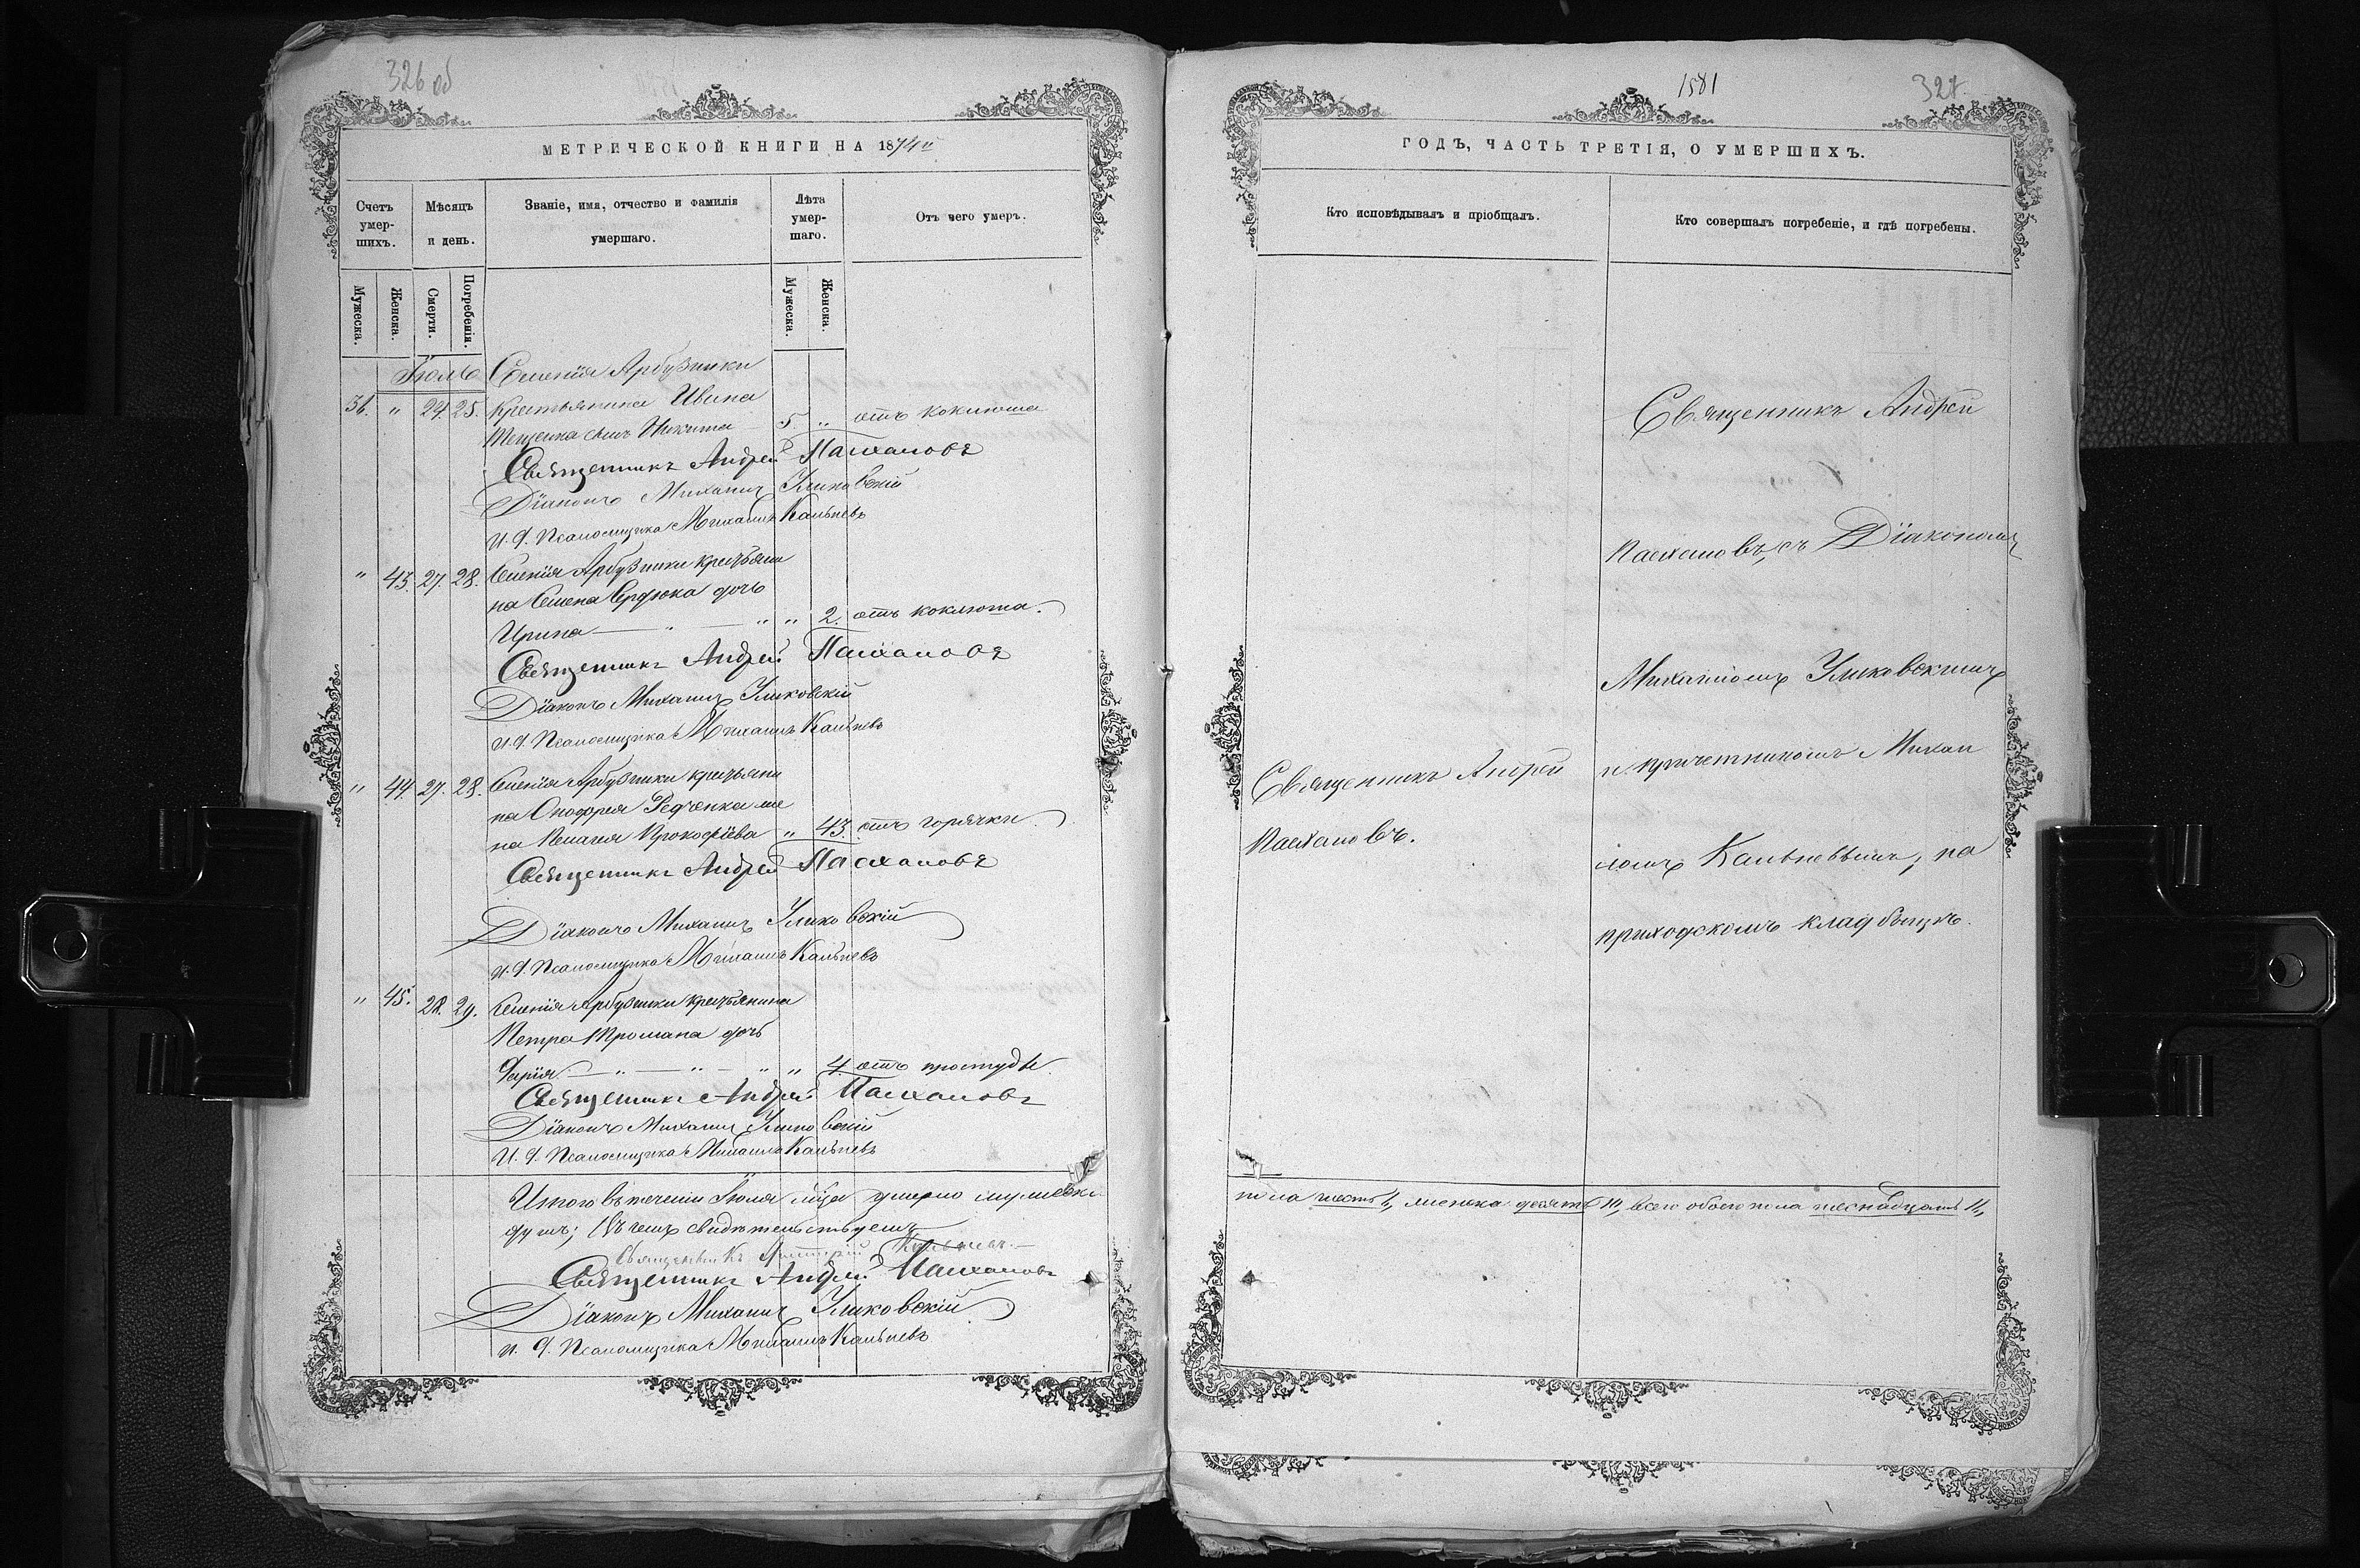 326 об
МЕТРИЧЕСКОЙ КНИГИ НА 1874 й
Счетъ умер-шихъ.
Мѣсяцъ и день.
Званіе, имя, отчество и фамилія умершаго.
Лѣта умер-шаго.
Отъ чего умеръ.
Мужеска.
Женска.
Смерти.
Погребенія.
Мужеска.
Женска.
Іюль Селенія Арбузинки
36. " 24. 25. крестьянина Ивана
сынъ Никита 5 " отъ коклюша
Священникъ Андрей Пасхаловъ
Діаконъ Михаилъ Уликовскій
И. д. Псаломщика Михаилъ Кальневъ
" 43. 27. 28. Селенія Арбузинки крестьяни
на Семена Сердюка дочь
Ирина " " " 2. отъ коклюша.
Священникъ Андрей Пасхаловъ
Діаконъ Михаилъ Уликовскій
И. д. Псаломщика Михаилъ Кальневъ
" 44. 27. 28. Селенія Арбузинки крестьяни
на Онофрея Редченка же
на Пелагея Прокофіева " 43. отъ горячки
Священникъ Андрей Пасхаловъ
Діаконъ Михаилъ Уликовскій
И. д. Псаломщика Михаилъ Кальневъ
" 45. 28. 29. Селенія Арбузинки крестьянина
Петра дочь
Дарія " " " " 4. отъ простуды
Священникъ Андрей Пасхаловъ
Діаконъ Михаилъ Уликовскій
И. д. Псаломщика Михаилъ Кальневъ
Итого въ теченіи Іюля мѣсяца умерло мужеска
душъ; въ чемъ свидѣтельствуемъ
Священникъ Кальневъ.
Священникъ Андрей Пасхаловъ
Діаконъ Михаилъ Уликовскій
И. д. Псаломщика Михаилъ Кальневъ
1581
327.
ГОДЪ, ЧАСТЬ ТРЕТІЯ, О УМЕРШИХЪ.
Кто исповѣдывалъ и пріобщалъ.
Кто совершалъ погребеніе, и гдѣ погребены.
Священникъ Андрей
Пасхаловъ, съ Діакономъ
Михаиломъ Уликовскимъ
Священникъ Андрей
Пасхаловъ.
и причетникомъ Михаи
ломъ Кальневымъ, на
приходскомъ кладбищѣ.
пола шесть 6, женска десять 10, всего обоего пола шеснадцать 16,